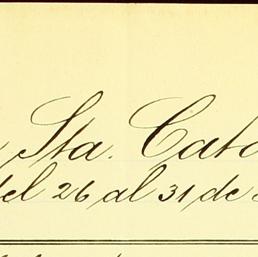 Sta. Cata
del 26 al 31 de